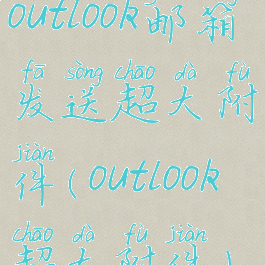 outlook邮箱
fā sòng chāo dà fù
发送超大附
jiàn
件(outlook
chāo dà fù jiàn
超大附件)